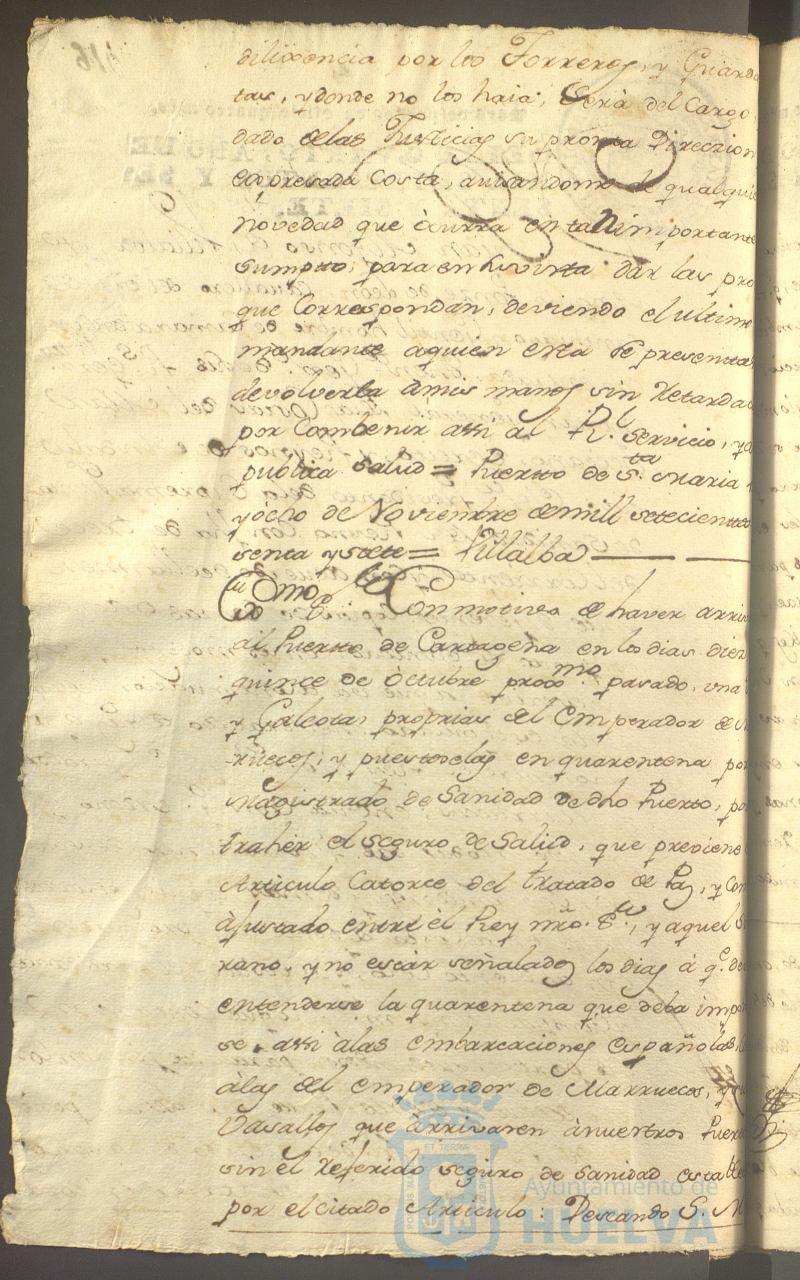 416
diligencia por los Torreros, y Guarda
tas, y donde no los haia, Será del Cargo
dado delas Justicias su prónta Direczion
expresada Costa, avisandome de qualquie
novedad que ócurra en tan importante
sumpto, para en su vista dar las pro
que Correspondan, deviendo el ultimo
mandante aquien esta se presenta
devolverla ámis manos sin Retarda
por Combenir assi al Rl. servicio, ya
publica salud = Puerto de Sta. Maria
y ócho de Noviembre de mill setecientos
senta y siete = Villalba
Exmo. Sr. Con motivo de haver arri
al Puerto de Cartagena en los dias diez
quince de óctubre proxmo. pasado, una
y Galeota, proprias del Emperador de M
ruecos, y puestoselas en quarentena por
Magistrado de Sanidad de dho Puerto, po
traher el seguro de Salud, que previene
Articulo Catorce del tratado de Paz, y Com
ájustado entre el Rey nro. Sr., y aquel S
rano, y no estár señalados los dias á qe. de
entenderse la quarentena que deba impo
se, assi álas embarcaciones españolas,
álas del emperador de Marruecos, y
Vasallos que árrivaren ánuestros Puer
sin el Referido seguro de sanidad esta
por el citado Articulo: Deseando S. M
Ayuntamiento de
HUELVA